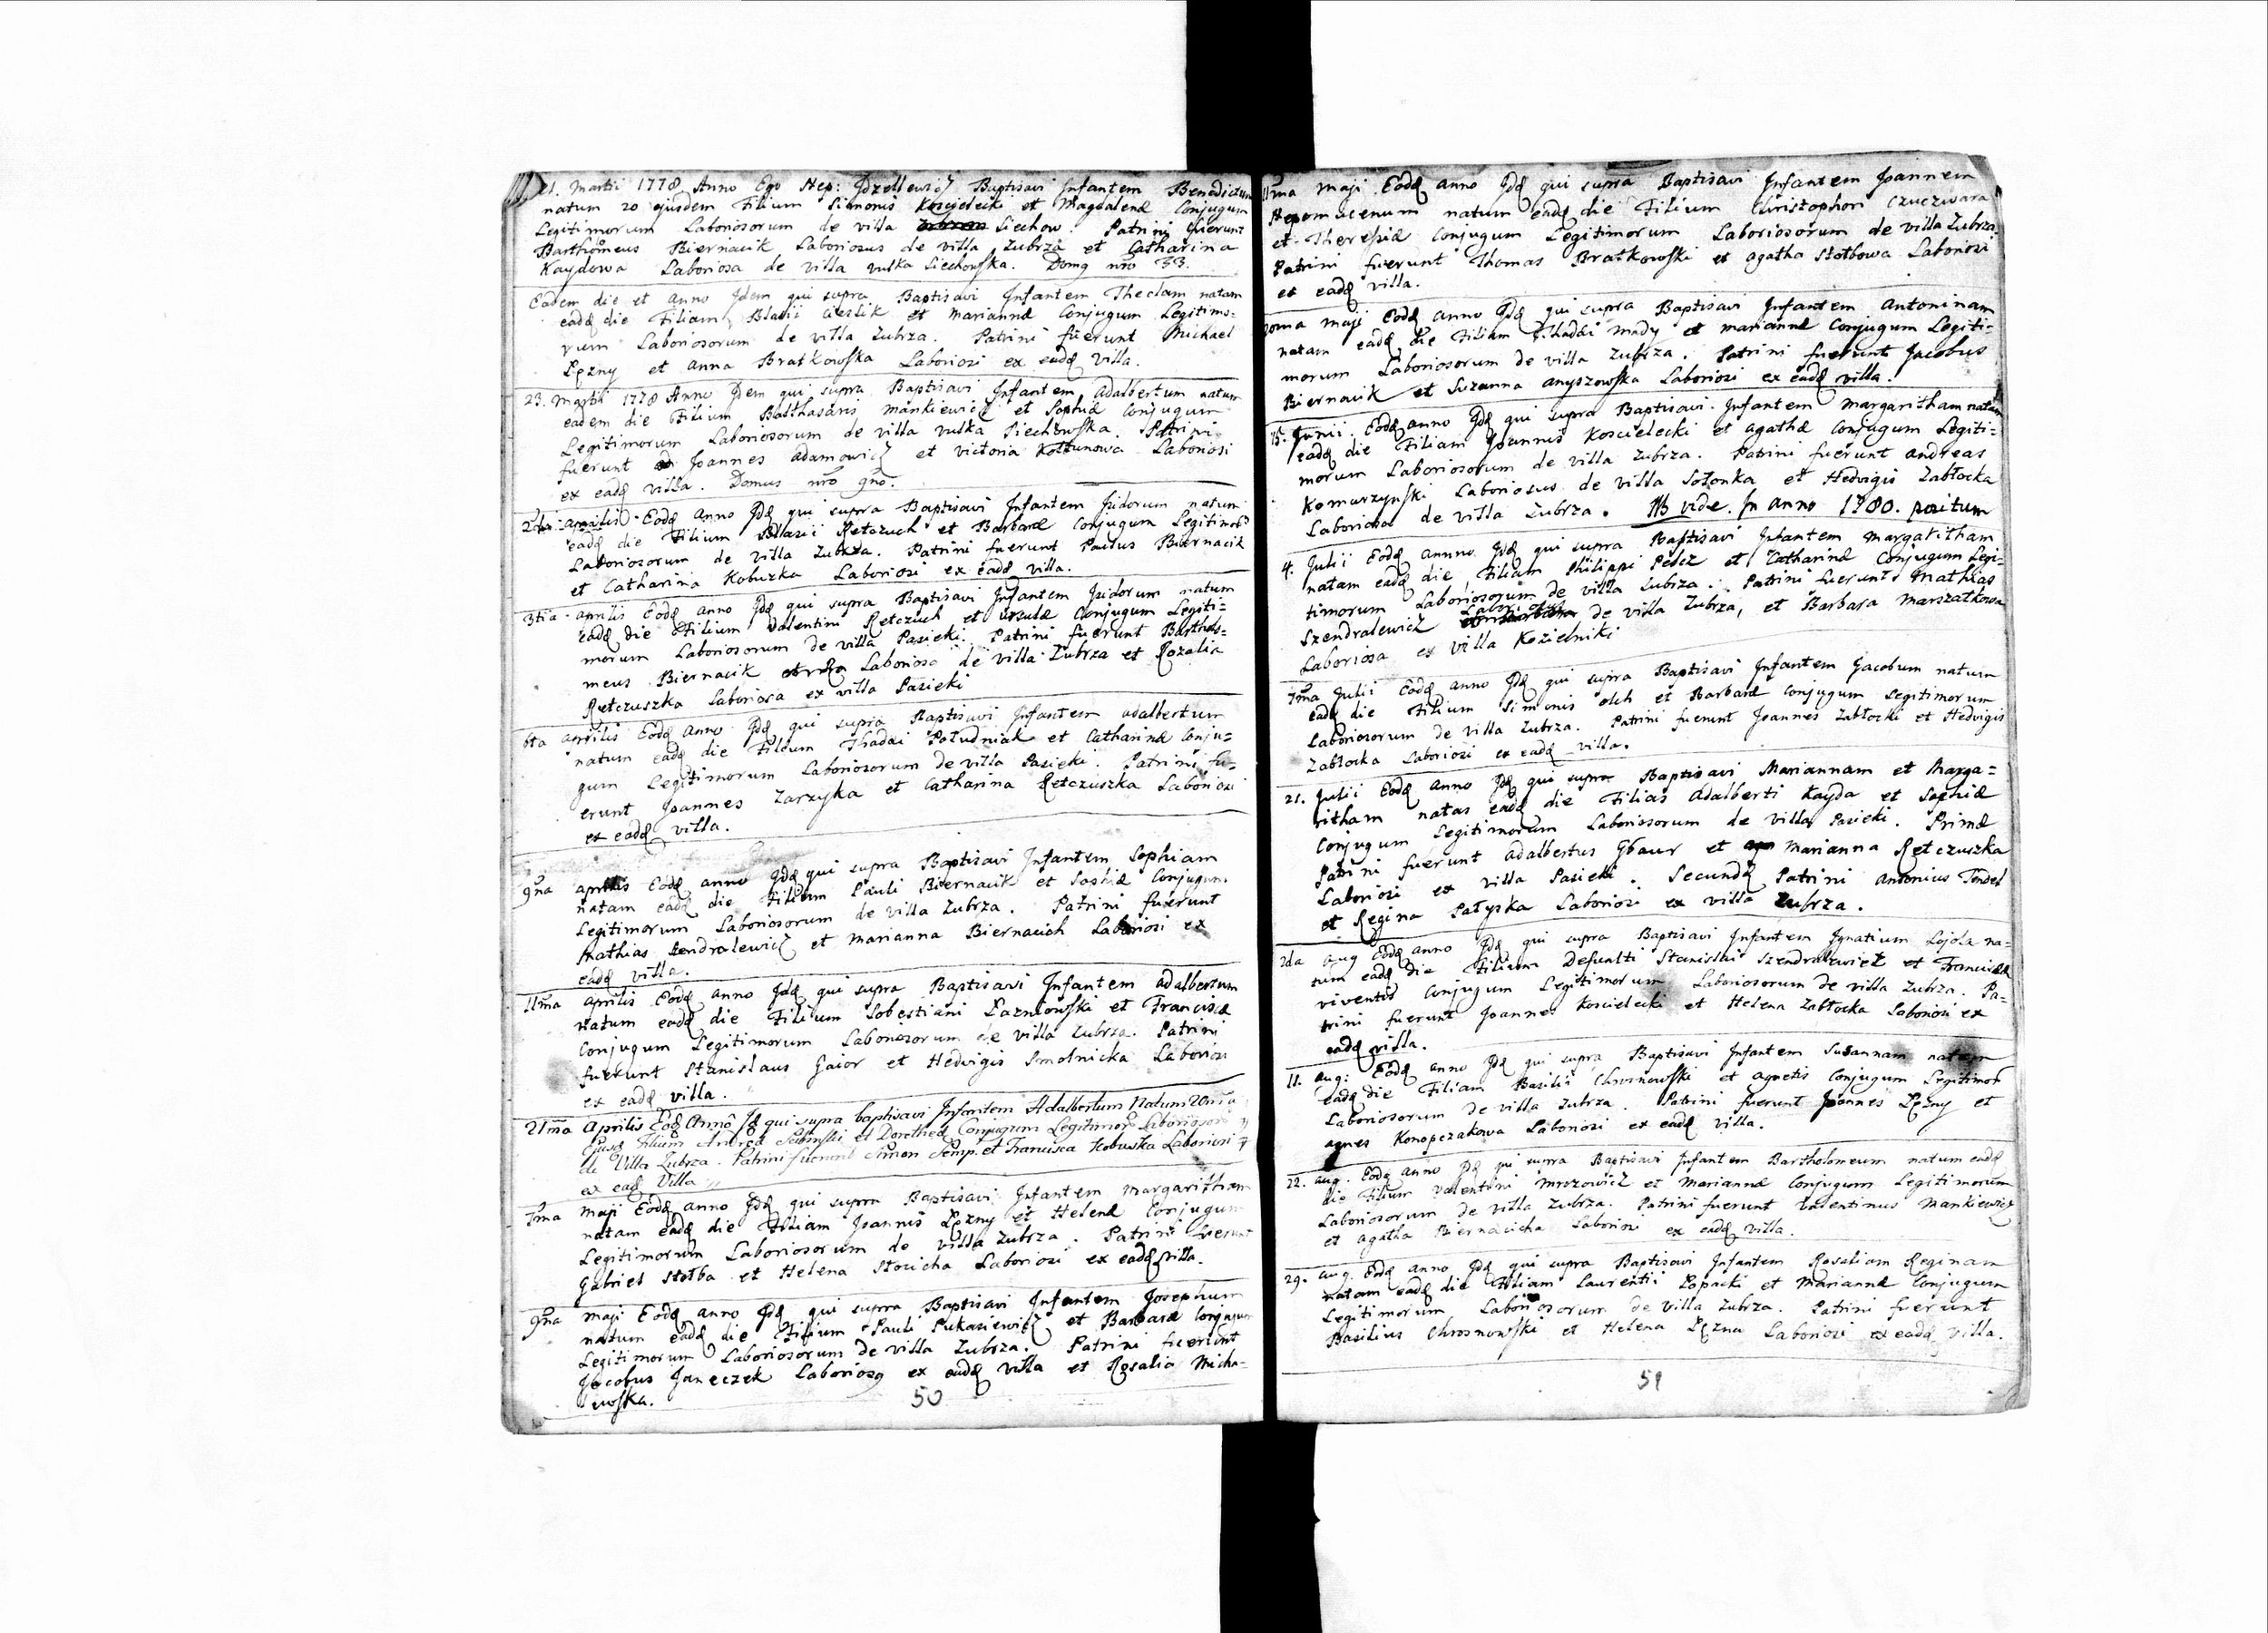 21. Martii 1778 Anno Ego Nep: Idzellewicz Baptisavi Infantem Benedictum
natum 20 ejusdem Filium Simonis Koscielecki et Magdalenæ Conjugum
Legitimorum Laboriosorum de villa Siechow. Patrini fuerunt
Barthomeus Biernacik Laboriosus de villa Zubrza et Catharina
Kaydowa Laboriosa de villa vulka Siechowska. Domq nro 33.
Eadem die et anno Idem qui supra Baptisavi Infantem Theclam natam
eadq die Filiam Blasii Cieslik et Mariannæ Conjugum Legitimo=
rum Laboriosorum de villa Zubrza. Patrini fuerunt Michael
Lęzny et Anna Bratkowska Laboriosi ex eadq villa.
23. Martii 1778 Anno Idem qui supra Baptisavi Infantem Adalbertum natum
eadem die Filium Balthasaris Mankiewicz et Sophiæ Conjugum
Legitimorum Laboriosorum de villa vulka Siechowska. Patrini
fuerunt Joannes Adamowicz et Victoria Kołtunowa Laboriosi
ex eadq villa. Domus nro 9no.
2da aprilis Eodq Anno Idq qui supra Baptisavi Infantem Isidorum natum
eadq die Filium Blasii Retczuch et Barbaræ Conjugum Legitimor
Laboriosorum de villa Zubrza. Patrini fuerunt Paulus Biernacik
et Catharina Kobuzka Laboriosi ex eadq villa.
3tia aprilis Eodq anno Idq qui supra Baptisavi Infantem Isidorum natum
eadq die Filium Valentini Retczuch et Ursulæ Conjugum Legiti=
morum Laboriosorum de villa Pasieki. Patrini fuerunt Bartholo=
meus Biernacik Laboriosq de villa Zubrza et Rozalia
Retczuszka Laboriosa ex villa Pasieki
6ta aprilis Eodq Anno Idq qui supra Baptisavi Infantem adalbertum
natum eadq die Filium Thadæi Południak et Catharinæ Conju=
gum Legitimorum Laboriosorum de villa Pasieki. Patrini fu=
erunt Joannes Zarzyka et Catharina Retczuszka Laboriosi
ex eadq villa.
9na aprilis Eodq anno Idq qui supra Baptisavi Infantem Sophiam
natam eadq die Filium Pauli Biernacik et Sophiæ Conjugum
Legitimorum Laboriosorum de villa Zubrza. Patrini fuerunt
Mathias Szendralewicz et Marianna Biernacich Laboriosi ex
eadq villa.
11ma aprilis Eodq anno Idq qui supra Baptisavi Infantem adalbertum
natum eadq die Filium Sobestiani Łazniowski et Franciscæ
Conjugum Legitimorum Laboriosorum de villa Zubrza. Patrini
fuerunt Stanislaus Gaior et Hedvigis Smolnicka Laboriosi
ex eadq villa.
21ma Aprilis Eodq Anno Idq qui supra baptisavi Infantem Adalbertum Natum 20ma
Ejusdq Filium Andreæ et Dorotheæ Conjugum Legitimor Laboriosor
de Villa Zubrza. Patrini fuerunt Simon Semp. et Francisca Kobuska Laboriosi
ex eadq Villa
7ma Maji Eodq anno Idq qui supra Baptisavi Infantem Margaritham
natam eadq die Filiam Joannis Lęzny et Helenæ Conjugum
Legitimorum Laboriosorum de villa Zubrza. Patrini fuerunt
Gabriel Stołba et Helena Storicha Laboriosi ex eadq villa.
9na Maji Eodq anno Idq qui supra Baptisavi Infantem Josephum
natum eadq die Filium Pauli Łukasiewicz et Barbaræ Conjugum
Legitimorum Laboriosorum de villa Zubrza. Patrini fuerunt
Jacobus Janeczek Laboriosq ex eadq villa et Rosalia Micha=
lewska.
50
11ma Maji Eodq anno Idq qui supra Baptisavi Infantem Joannem
Nepomucenum natum eadq die Filium Christophori Czuczwara
et Theresiæ Conjugum Legitimorum Laboriosorum de villa Zubrza
Patrini fuerunt Thomas Bratkowski et agatha Stołbowa Laboriosi
ex eadq villa.
20ma Maji Eodq anno Idq qui supra Baptisavi Infantem Antoninam
natam eadq die Filiam Thadæi Mady et Mariannæ Conjugum Legiti=
morum Laboriosorum de villa Zubrza. Patrini fuerunt Jacobus
Biernacik et Suzanna Anyszowska Laboriosi ex eadq villa.
15. Junii Eodq anno Idq qui supra Baptisavi Infantem Margaritham natam
eadq die Filiam Joannis Koscielecki et Agathæ Conjugum Legiti=
morum Laboriosorum de villa Zubrza. Patrini fuerunt Andreas
Komarzynski Laboriosus de villa Sołonka et Hedvigis Zabłocka
Laboriosa de villa Zubrza. NB vide In anno 1780. positum
4. Julii Eodq annno Idq qui supra Baptisavi Infantem Margaritham
natam eadq die, Filiam Philippi Pelcz et Catharinæ Conjugum Legi-
timorum Laboriosorum de villa Zubrza. Patrini fuerunt Mathias
Szendralewicz Laboriosus de villa Zubrza, et Barbara Marszałkowa
Laboriosa ex villa Kozielniki
7ma Julii Eodq anno Idq qui supra Baptisavi Infantem Jacobum natum
eadq die Filium Simonis Olch et Barbaræ Conjugum Legitimorum
Laboriosorum de villa Zubrza. Patrini fuerunt Joannes Zabłocki et Hedvigis
Zabłocka Laboriosi ex eadq villa.
21. Julii Eodq Anno Idq qui supra Baptisavi Mariannam et Marga=
ritham natas eadq die Filias Adalberti Kayda et Sophiæ
Conjugum Legitimorum Laboriosorum de villa Pasieki. Primæ
Patrini fuerunt Adalbertus Gbaur et Marianna Retczuszka
Laboriosi ex villa Pasieki. Secundæ Patrini Antonius Tendel
et Regina Pałyska Laboriosi ex villa Zubrza.
2da aug Eodq anno Idq qui supra Baptisavi Infantem Ignatium Lojola na=
tum eadq die Filium Defuncti Stanislai Szendralewicz et Franciscæ
viventis Conjugum Legitimorum Laboriosorum de villa Zubrza. Pa=
trini fuerunt Joannes Koscielecki et Helena Zabłocka Laboriosi ex
eadq villa.
11. aug: Eodq anno Idq qui supra Baptisavi Infantem Susannam natam
eadq die Filiam Basilii Chrosnowski et Agnetis Conjugum Legitimor
Laboriosorum de villa Zubrza. Patrini fuerunt Joannes Lęzny et
agnes Konopczakowa Laboriosi ex eadq villa.
22. aug. Eodq anno Idq qui supra Baptisavi Infantem Bartholomeum natum eadq
die Filium Valentini Mrozowicz et Mariannæ Conjugum Legitimorum
Laboriosorum de villa Zubrza. Patrini fuerunt Valentinus Mankiewicz
et agatha Biernacicha Laboriosi ex eadq villa.
29. aug. Eodq anno Idq qui supra Baptisavi Infantem Rosaliam Reginam
natam eadq die Filiam Laurentii Łopacki et Mariannæ Conjugum
Legitimorum Laboriosorum de villa Zubrza. Patrini fuerunt
Basilius Chrosnowski et Helena Lęzna Laboriosi ex eadq villa.
51